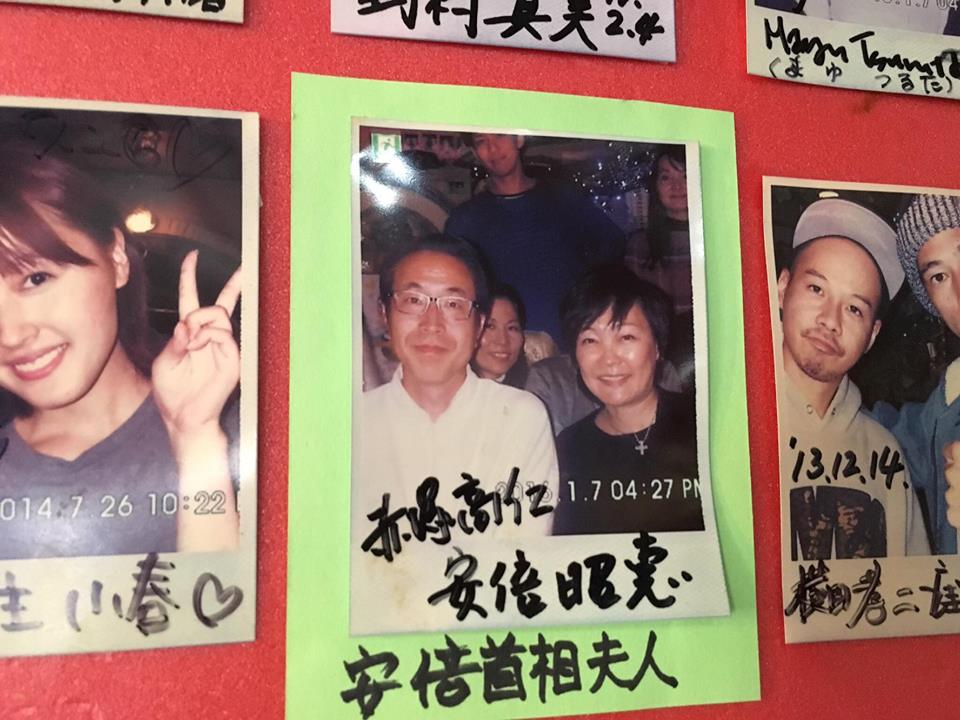 野村真美
2.4
Mayu Tsuruta
(まゆ つるた)
2014.7.26 10:22
小春♡
1.7 04:27 PM
赤塚高仁
安倍昭恵
安倍首相夫人
'13.12.14.
横田孝二